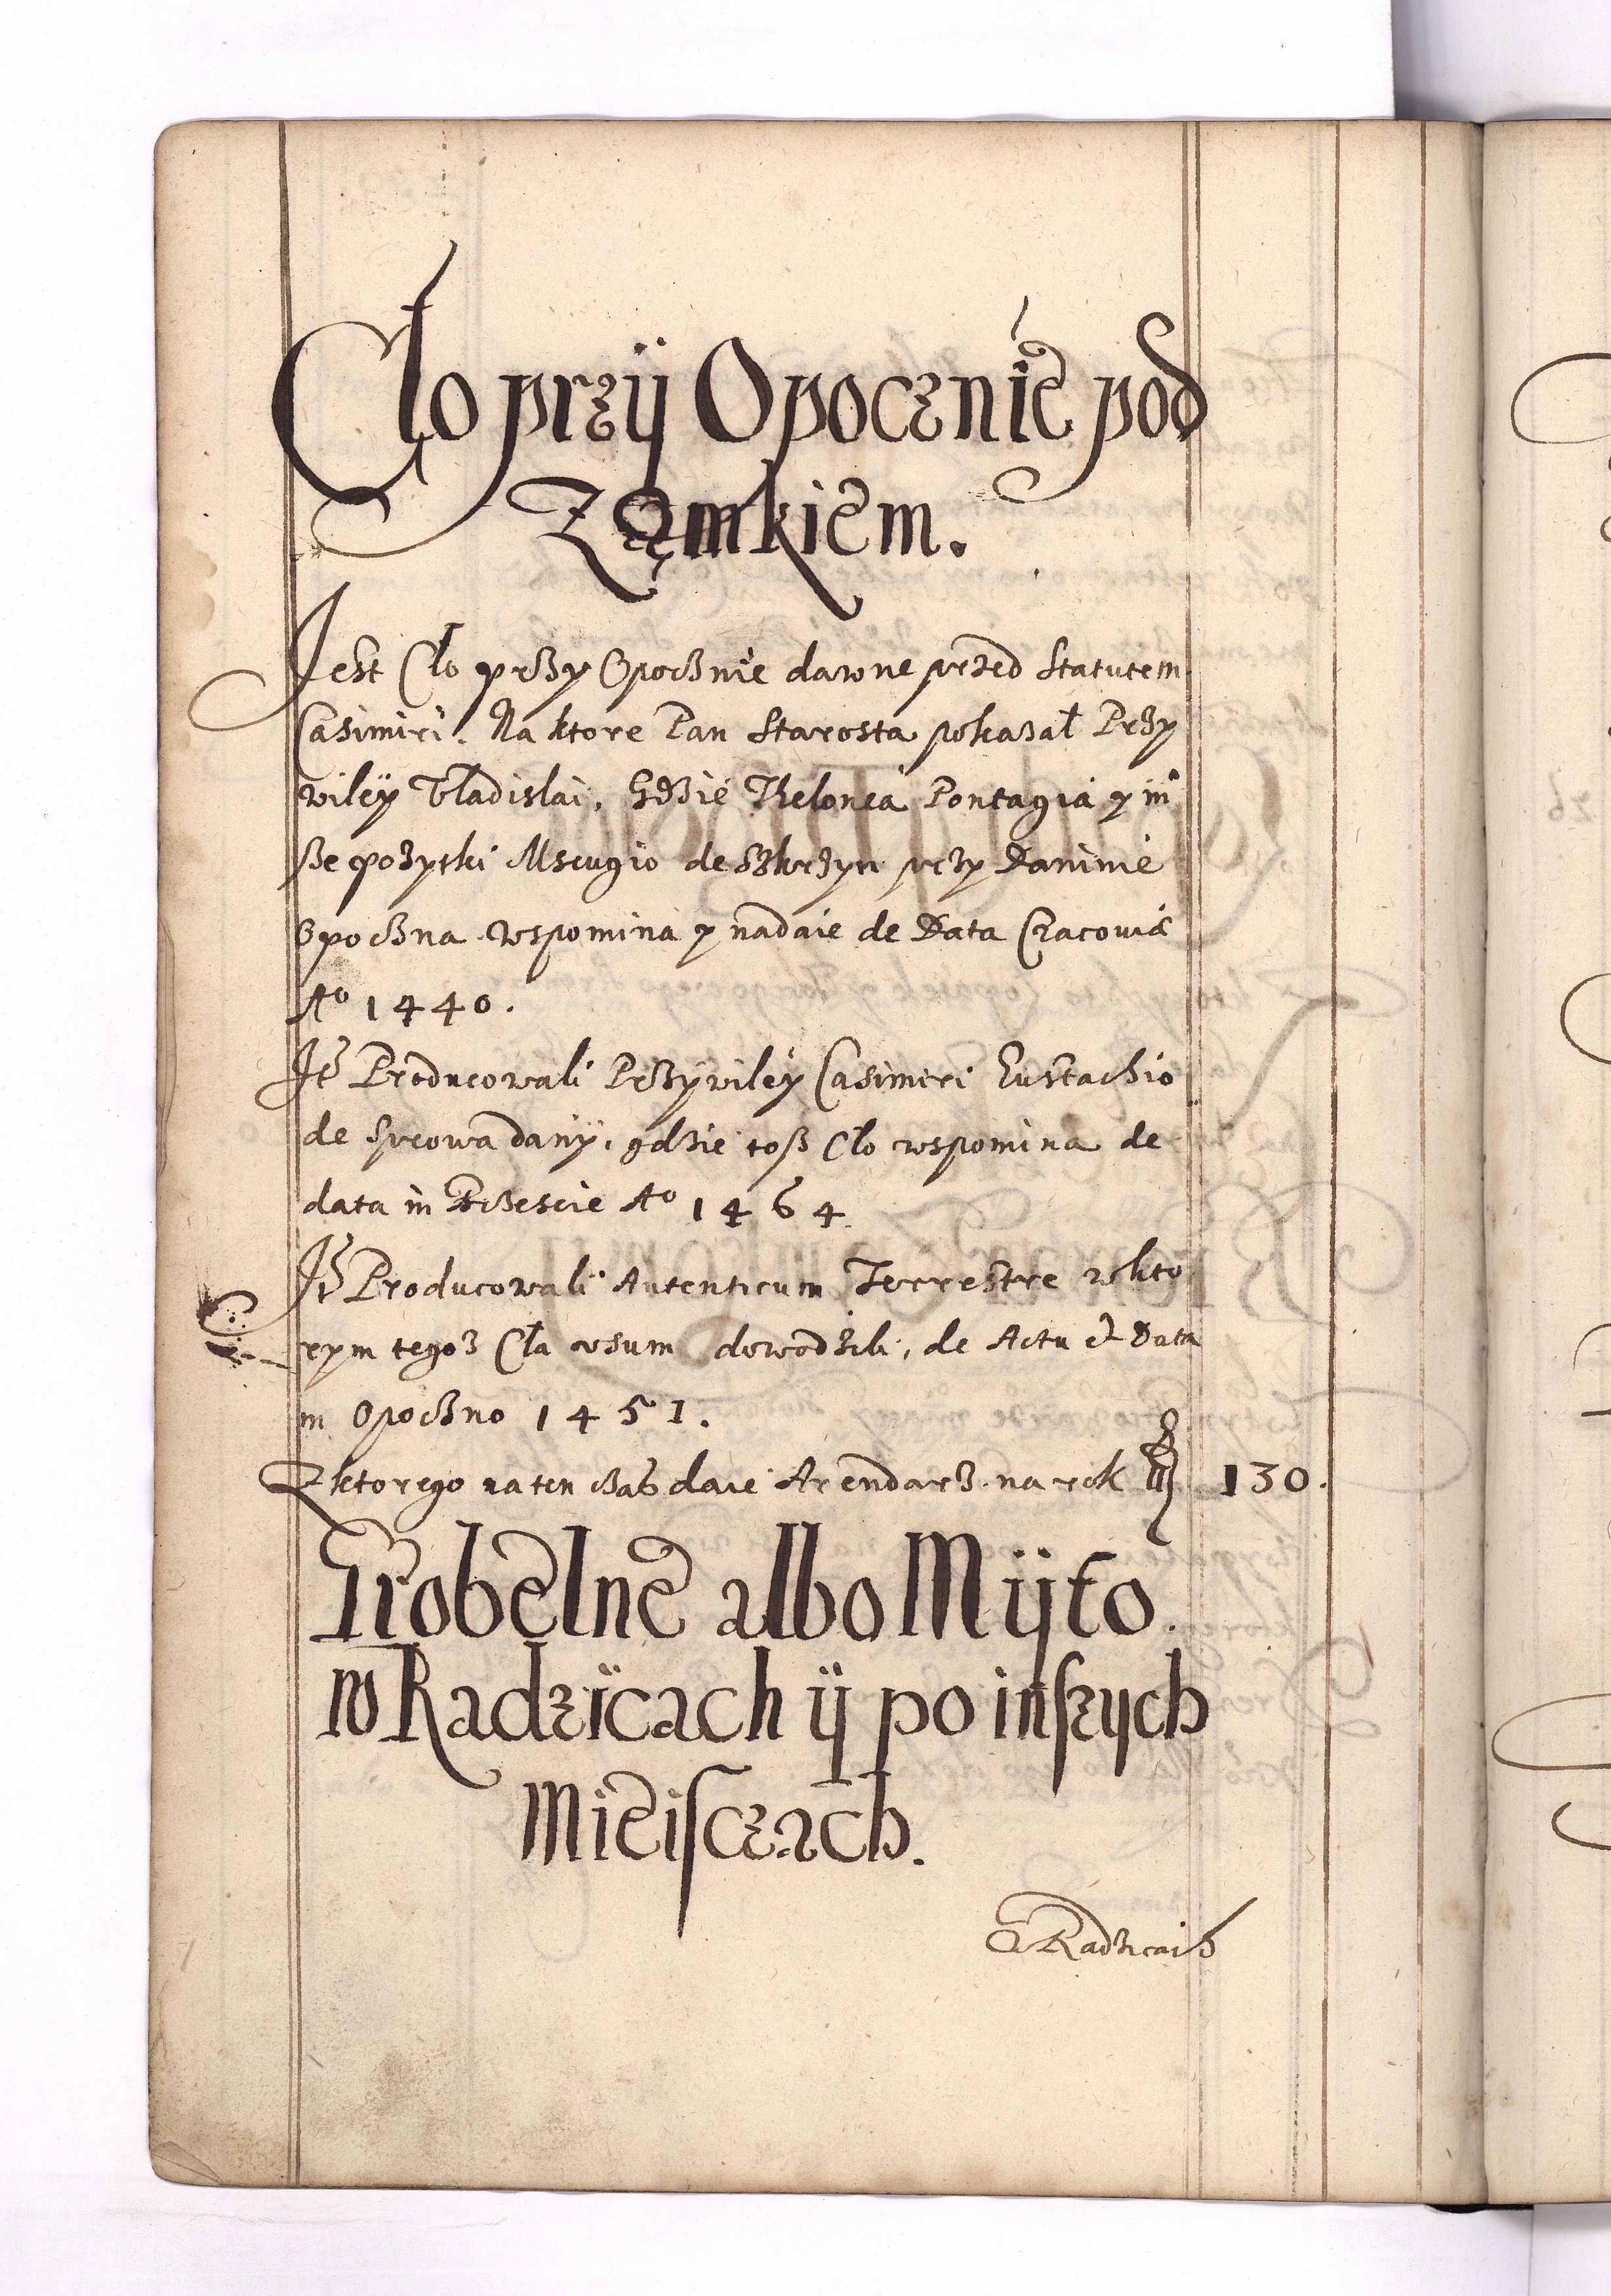 Cło przÿ Opocznie pod
Ząmkiem.
Jest Cło przy Opocznie dawne przed Statutem
Casimiri. Na ktore Pan Starosta pokazał Przy
wiley Vladislai, Gdzie Thelonea Pontagia y in
sze pozytki Msciugio de przy Daninie
Opoczna wspomina y nadaie de Data Cracoviæ
Aº 1440.
Jt Producowali Przÿwiley Casimiri Eustachio
de Sprowa danÿ, gdzie tosz Cło wspomina de
data in Brzescie Aº 1464
Jt Producowali Autenticum Terrestre w kto
rym tegoz Cła vsum dowodzili, de Actu et Data
in Opoczno 1451.
Z ktorego na ten czas daie Arendarz na rok 130.
Grobelne albo Mÿto
w Radzicach ÿ po inszych
Mieisczach.
Radzicach